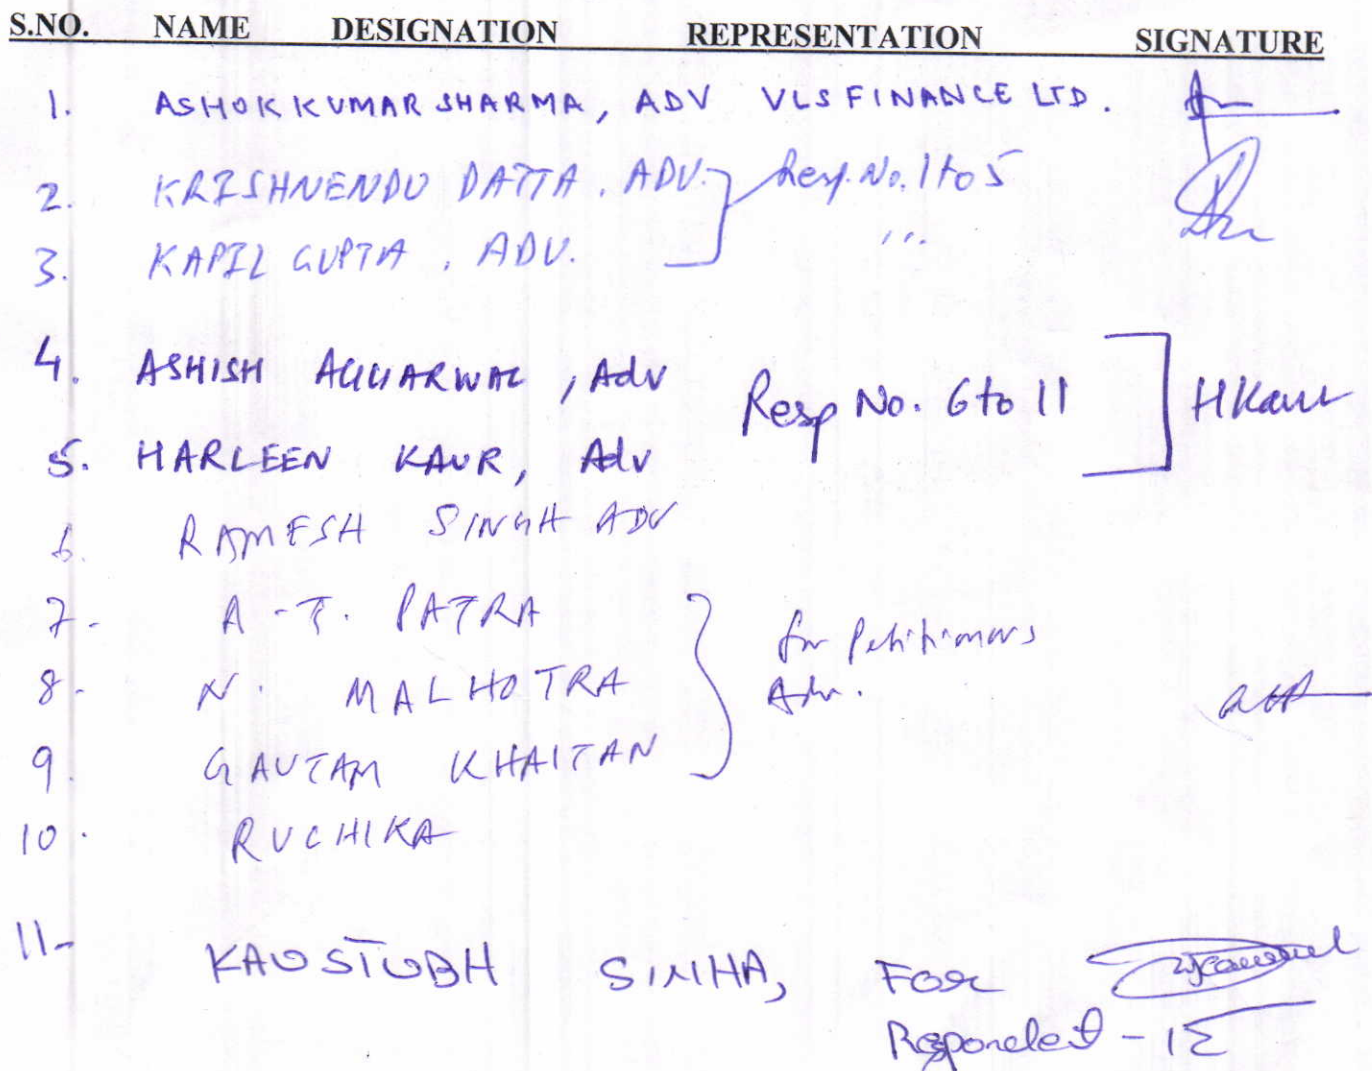 S.NO. NAME DESIGNATION REPRESENTATION SIGNATURE
1. ASHOK KUMAR SHARMA, ADV VLS FINANCE LTD.
2. KRISHNENDU DATTA. ADV. Resp. No. 1 to 5
3. KAPIL GUPTA, ADV. ,,.
4. ASHISH AGGARWAL, Adv
Resp No. 6 to 11 HKaur
5. HARLEEN KAUR, Adv
6. RAMESH SINGH ADV
7. A.T. PATRA
for Petitioners
8. N. MALHOTRA Adv.
9. GAUTAM KHAITAN
10. RUCHIKA
11- KAUSTUBH SINHA, FOR
Respondent -